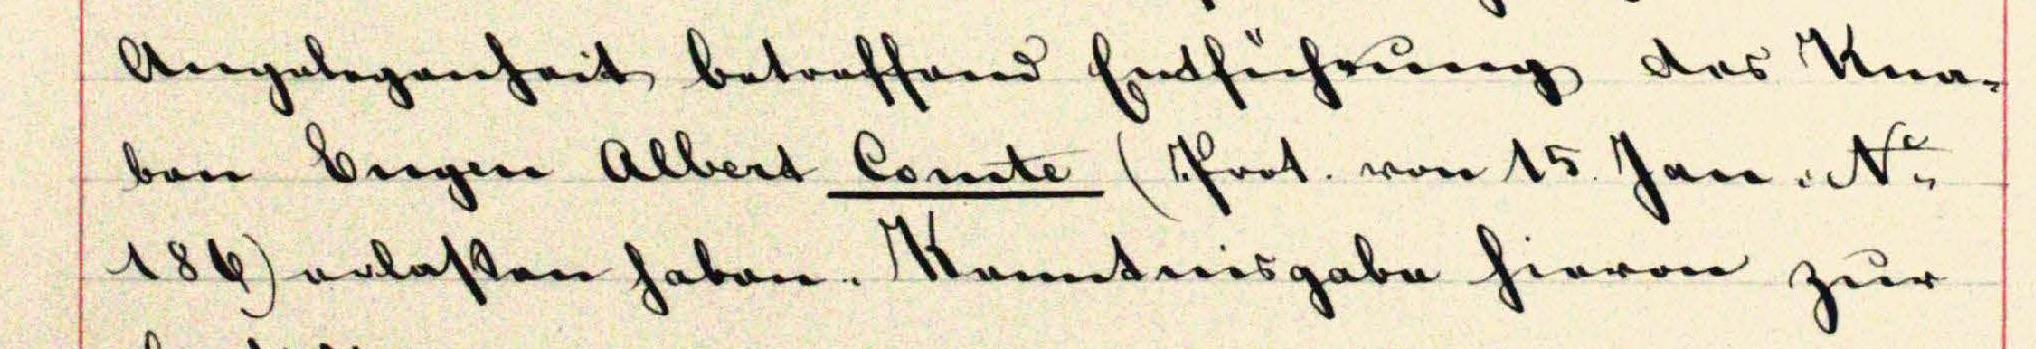 Angelegenheit betreffend Entführung des Kna-
ben Eugen Albert Comte (Prot. von 15. Jan. No
186) erlaßen haben. Kenntnisgabe hievon zur